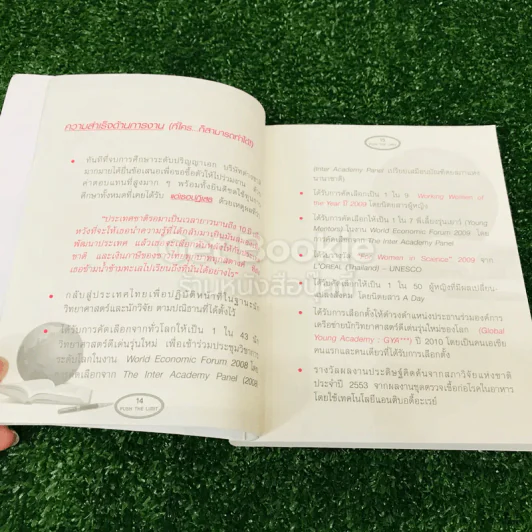 ความสำเร็จด้านการงาน (ที่ใคร...ก็สามารถทำได้)
• ทันทีที่จบการศึกษาระดับปริญญาเอก บริษัทต่างชาติ
มากมายได้ยื่นข้อเสนอเพื่อขอซื้อตัวให้ไปร่วมงาน ด้วย
ค่าตอบแทนที่สูงมาก ๆ พร้อมทั้งยินดีชดใช้ทุนการ
ศึกษาทั้งหมดที่เคยได้รับ แต่เธอปฏิเสธ ด้วยเหตุผลหลัก
"ประเทศชาติรอคอยมาเป็นเวลายาวนานถึง 10 ปี
หวังที่จะให้เธอนำความรู้ที่ได้กลับมาเป็นส่วนหนึ่ง
พัฒนาประเทศ แล้วเธอจะเลือก
ชาติ และเงินภาษีของชาวไทยทุกบาททุกสตางค์ ที่
เธอข้ามน้ำข้ามทะเลไปเรียนถึงที่นั่นได้อย่างไร"
• กลับสู่ประเทศไทยเพื่อปฏิบัติหน้าที่ในฐานะนัก
วิทยาศาสตร์และนักวิจัย ตามปณิธานที่ได้ตั้งไว้
• ได้รับการคัดเลือกจากทั่วโลกให้เป็น 1 ใน 43 นัก
วิทยาศาสตร์ดีเด่นรุ่นใหม่ เพื่อเข้าร่วมประชุมวิชาการ
ระดับโลกในงาน World Economic Forum 2008 โดย
การคัดเลือกจาก The Inter Academy Panel (2008
14
PUSH THE LIMIT
Inter Academy Panel
นานาชาติ)
• ได้รับการคัดเลือกเป็น 1 ใน 9 Working Women of
the Year ปี 2009 โดยนิตยสารผู้หญิง
• ได้รับการคัดเลือกให้เป็น 1 ใน 7 พี่เลี้ยงรุ่นเยาว์ (Young
Mentors) ในงาน World Economic Forum 2009 โดย
การคัดเลือกจาก The Inter Academy Panel
Women in Science" 2009 จาก
L'OREAL (Thailand) – UNESCO
• ได้รับคัดเลือกให้เป็น 1 ใน 50 ผู้หญิงที่มีผลเปลี่ยน
แปลงสังคม โดยนิตยสาร A Day
• ได้รับการเลือกตั้งให้ดำรงตำแหน่งประธานร่วมองค์การ
เครือข่ายนักวิทยาศาสตร์ดีเด่นรุ่นใหม่ของโลก (Global
Young Academy : GYA***) ปี 2010 โดยเป็นคนเอเชีย
คนแรกและคนเดียวที่ได้รับการเลือกตั้ง
• รางวัลผลงานประดิษฐ์คิดค้นจากสภาวิจัยแห่งชาติ
ประจำปี 2553 จากผลงานชุดตรวจเชื้อก่อโรคในอาหาร
โดยใช้เทคโนโลยีแอนติบอดี้อะเรย์
ร้านหนังสือปู่